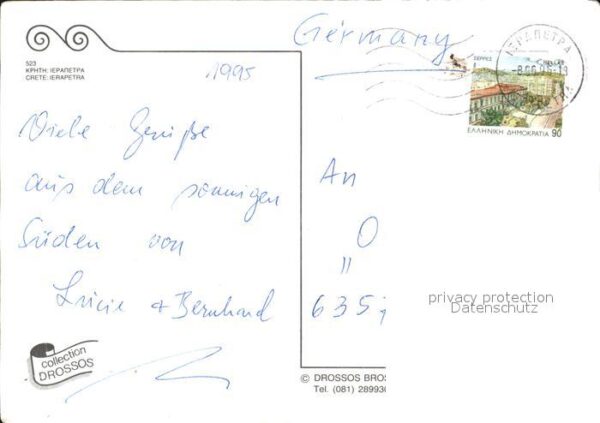 Germany
523
ΚΡΗΤΗ: ΙΕΡΑΠΕΤΡΑ
CRETE: IERAPETRA
1995
ΙΕΡΑΠΕΤΡΑ
ΣΕΡΡΕΣ
ΕΛΛΗΝΙΚΗ ΔΗΜΟΚΡΑΤΙΑ 90
Viele Grüße
aus dem sonnigen
Süden von
Lucie + Bernhard
An
O
635
privacy protection
Datenschutz
collection
DROSSOS
© DROSSOS BROS
Tel. (081) 289930